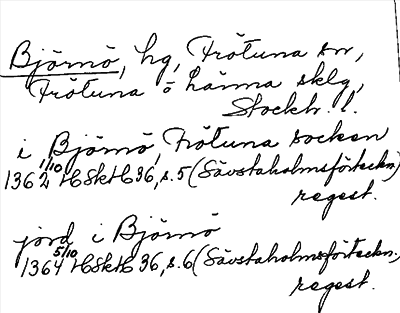 Björnö, hg, Frötuna sn,
Frötuna o Länna sklg,
Stockh. l.
i Björnö, Frötuna socken
1362 1/10 HSkH 36, s. 5 (Sävstaholmsförteckn.)
regest.
jord i Björnö
1364 5/10 HSkH 36, s. 6 (Sävstaholmsförteckn.)
regest.